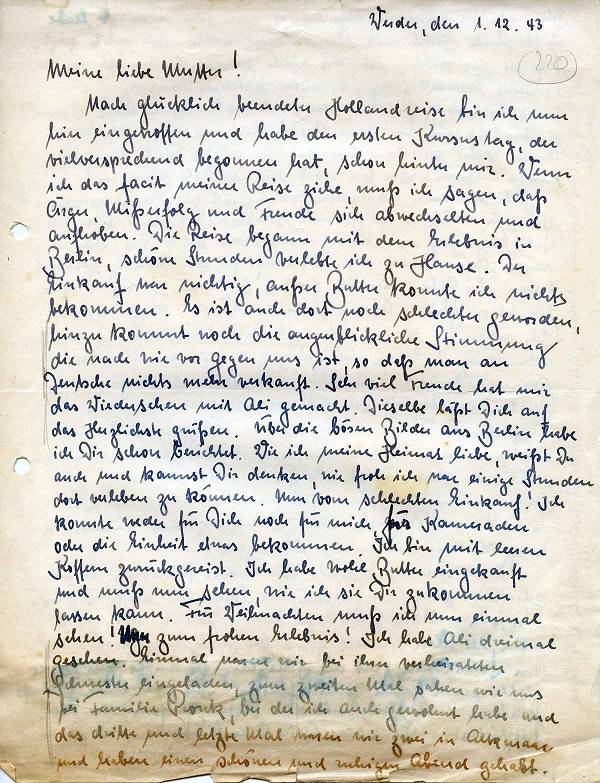 Werder, den 1.12.43
220
Meine liebe Mutter!
Nach glücklich beendeter Hollandreise bin ich nun
hier eingetroffen und habe den ersten Kursustag, der
vielversprechend begonnen hat, schon hinter mir. Wenn
ich das facit meiner Reise ziehe, muß ich sagen, daß
Ärger, Mißerfolg und Freude sich abwechselten und
aufhoben. Die Reise begann mit dem Erlebnis in
Berlin, schöne Stunden verlebte ich zu Hause. Der
Einkauf war nichtig, außer Butter konnte ich nichts
bekommen. Es ist auch dort noch schlechter geworden,
hinzu kommt noch die augenblickliche Stimmung
die nach wie vor gegen uns ist, so daß man an
Deutsche nichts mehr verkauft. Sehr viel Freude hat mir
das Wiedersehen mit Ali gemacht. Dieselbe läßt Dich auf
das Herzlichste grüßen. Über die bösen Bilder aus Berlin habe
ich Dir schon berichtet. Wie ich meine Heimat liebe, weißt Du
auch und kannst Dir denken, wie froh ich war einige Stunden
dort verleben zu können. Nun vom schlechten Einkauf! Ich
konnte weder für Dich noch für mich, für Kameraden
oder die Einheit etwas bekommen. Ich bin mit leeren
Koffern zurückgereist. Ich habe wohl Butter eingekauft
und muß nun sehen, wie ich sie Dir zukommen
lassen kann. Für Weihnachten muß ich nun einmal
sehen! Nun zum frohen Erlebnis! Ich habe Ali dreimal
gesehen. Einmal waren wir bei ihrer verheirateten
Schwester eingeladen, zum zweiten Mal sahen wir uns
bei Familie Pronk, bei der ich auch gewohnt habe und
das dritte und letzte Mal waren wir zwei in Alkmaar
und haben einen schönen und ruhigen Abend gehabt.